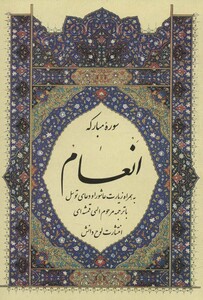 سورهٔ مبارکه
انعام
به همراه زیارت عاشورا و دعای توسل
با ترجمه مرحوم الهی قمشه‌ای
انتشارات لوح دانش